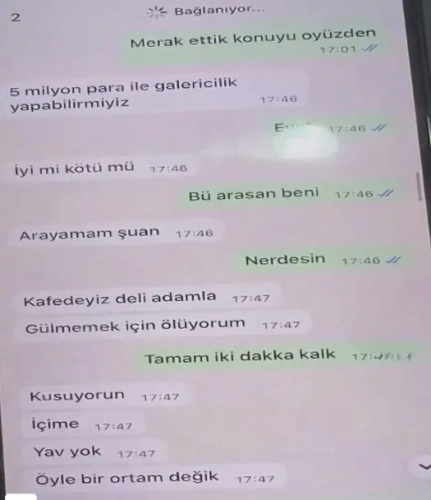 2
Bağlanıyor...
Merak ettik konuyu oyüzden
17:01
5 milyon para ile galericilik
yapabilirmiyiz 17:46
17:46
İyi mi kötü mü 17:46
Bü arasan beni 17:46
Arayamam şuan 17:46
Nerdesin 17:46
Kafedeyiz deli adamla 17:47
Gülmemek için ölüyorum 17:47
Tamam iki dakka kalk
Kusuyorun 17:47
İçime 17:47
Yav yok 17:47
Öyle bir ortam değik 17:47